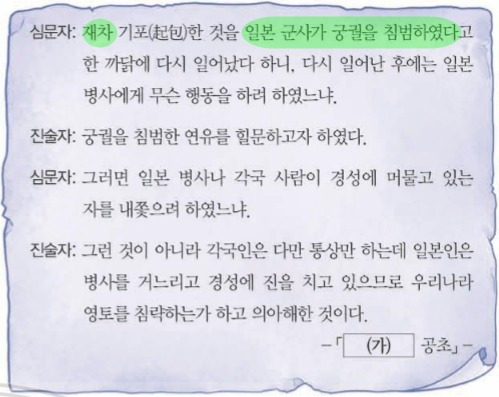 심문자: 재차 기포(起包)한 것을 일본 군사가 궁궐을 침범하였다고
한 까닭에 다시 일어났다 하니, 다시 일어난 후에는 일본
병사에게 무슨 행동을 하려 하였느냐.
진술자: 궁궐을 침범한 연유를 힐문하고자 하였다.
심문자: 그러면 일본 병사나 각국 사람이 경성에 머물고 있는
자를 내쫓으려 하였느냐.
진술자: 그런 것이 아니라 각국인은 다만 통상만 하는데 일본인은
병사를 거느리고 경성에 진을 치고 있으므로 우리나라
영토를 침략하는가 하고 의아해한 것이다.
-「 (가) 공초」-